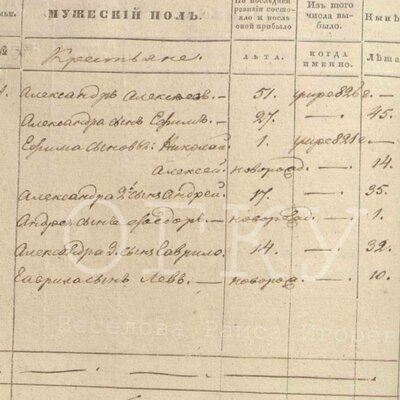 МУЖЕСКІЙ ПОЛЪ.
По послѣдней ревизіи состояло и послѣ оной прибыло
Изъ этого числа выбыло.
Нынѣ
ЛѢТА.
КОГДА ИМЕННО.
Лѣта
Крестьяне.
Александръ Алексѣевъ. — 51. умре 826 г. —
Александра сынъ Ефимъ. — 27. — 45.
Ефима сыновья: Николай 1. умре 821 г.
Алексей. новорож. — 14.
Александра 2й сынъ Андрей 17. — 35.
Андрея сынъ Федоръ. — новорож. — 1.
Александра 3. сынъ Гаврило. 14. — 32.
Гаврила сынъ Левъ. — новорож. — 10.
Веселова Раиса Игорев